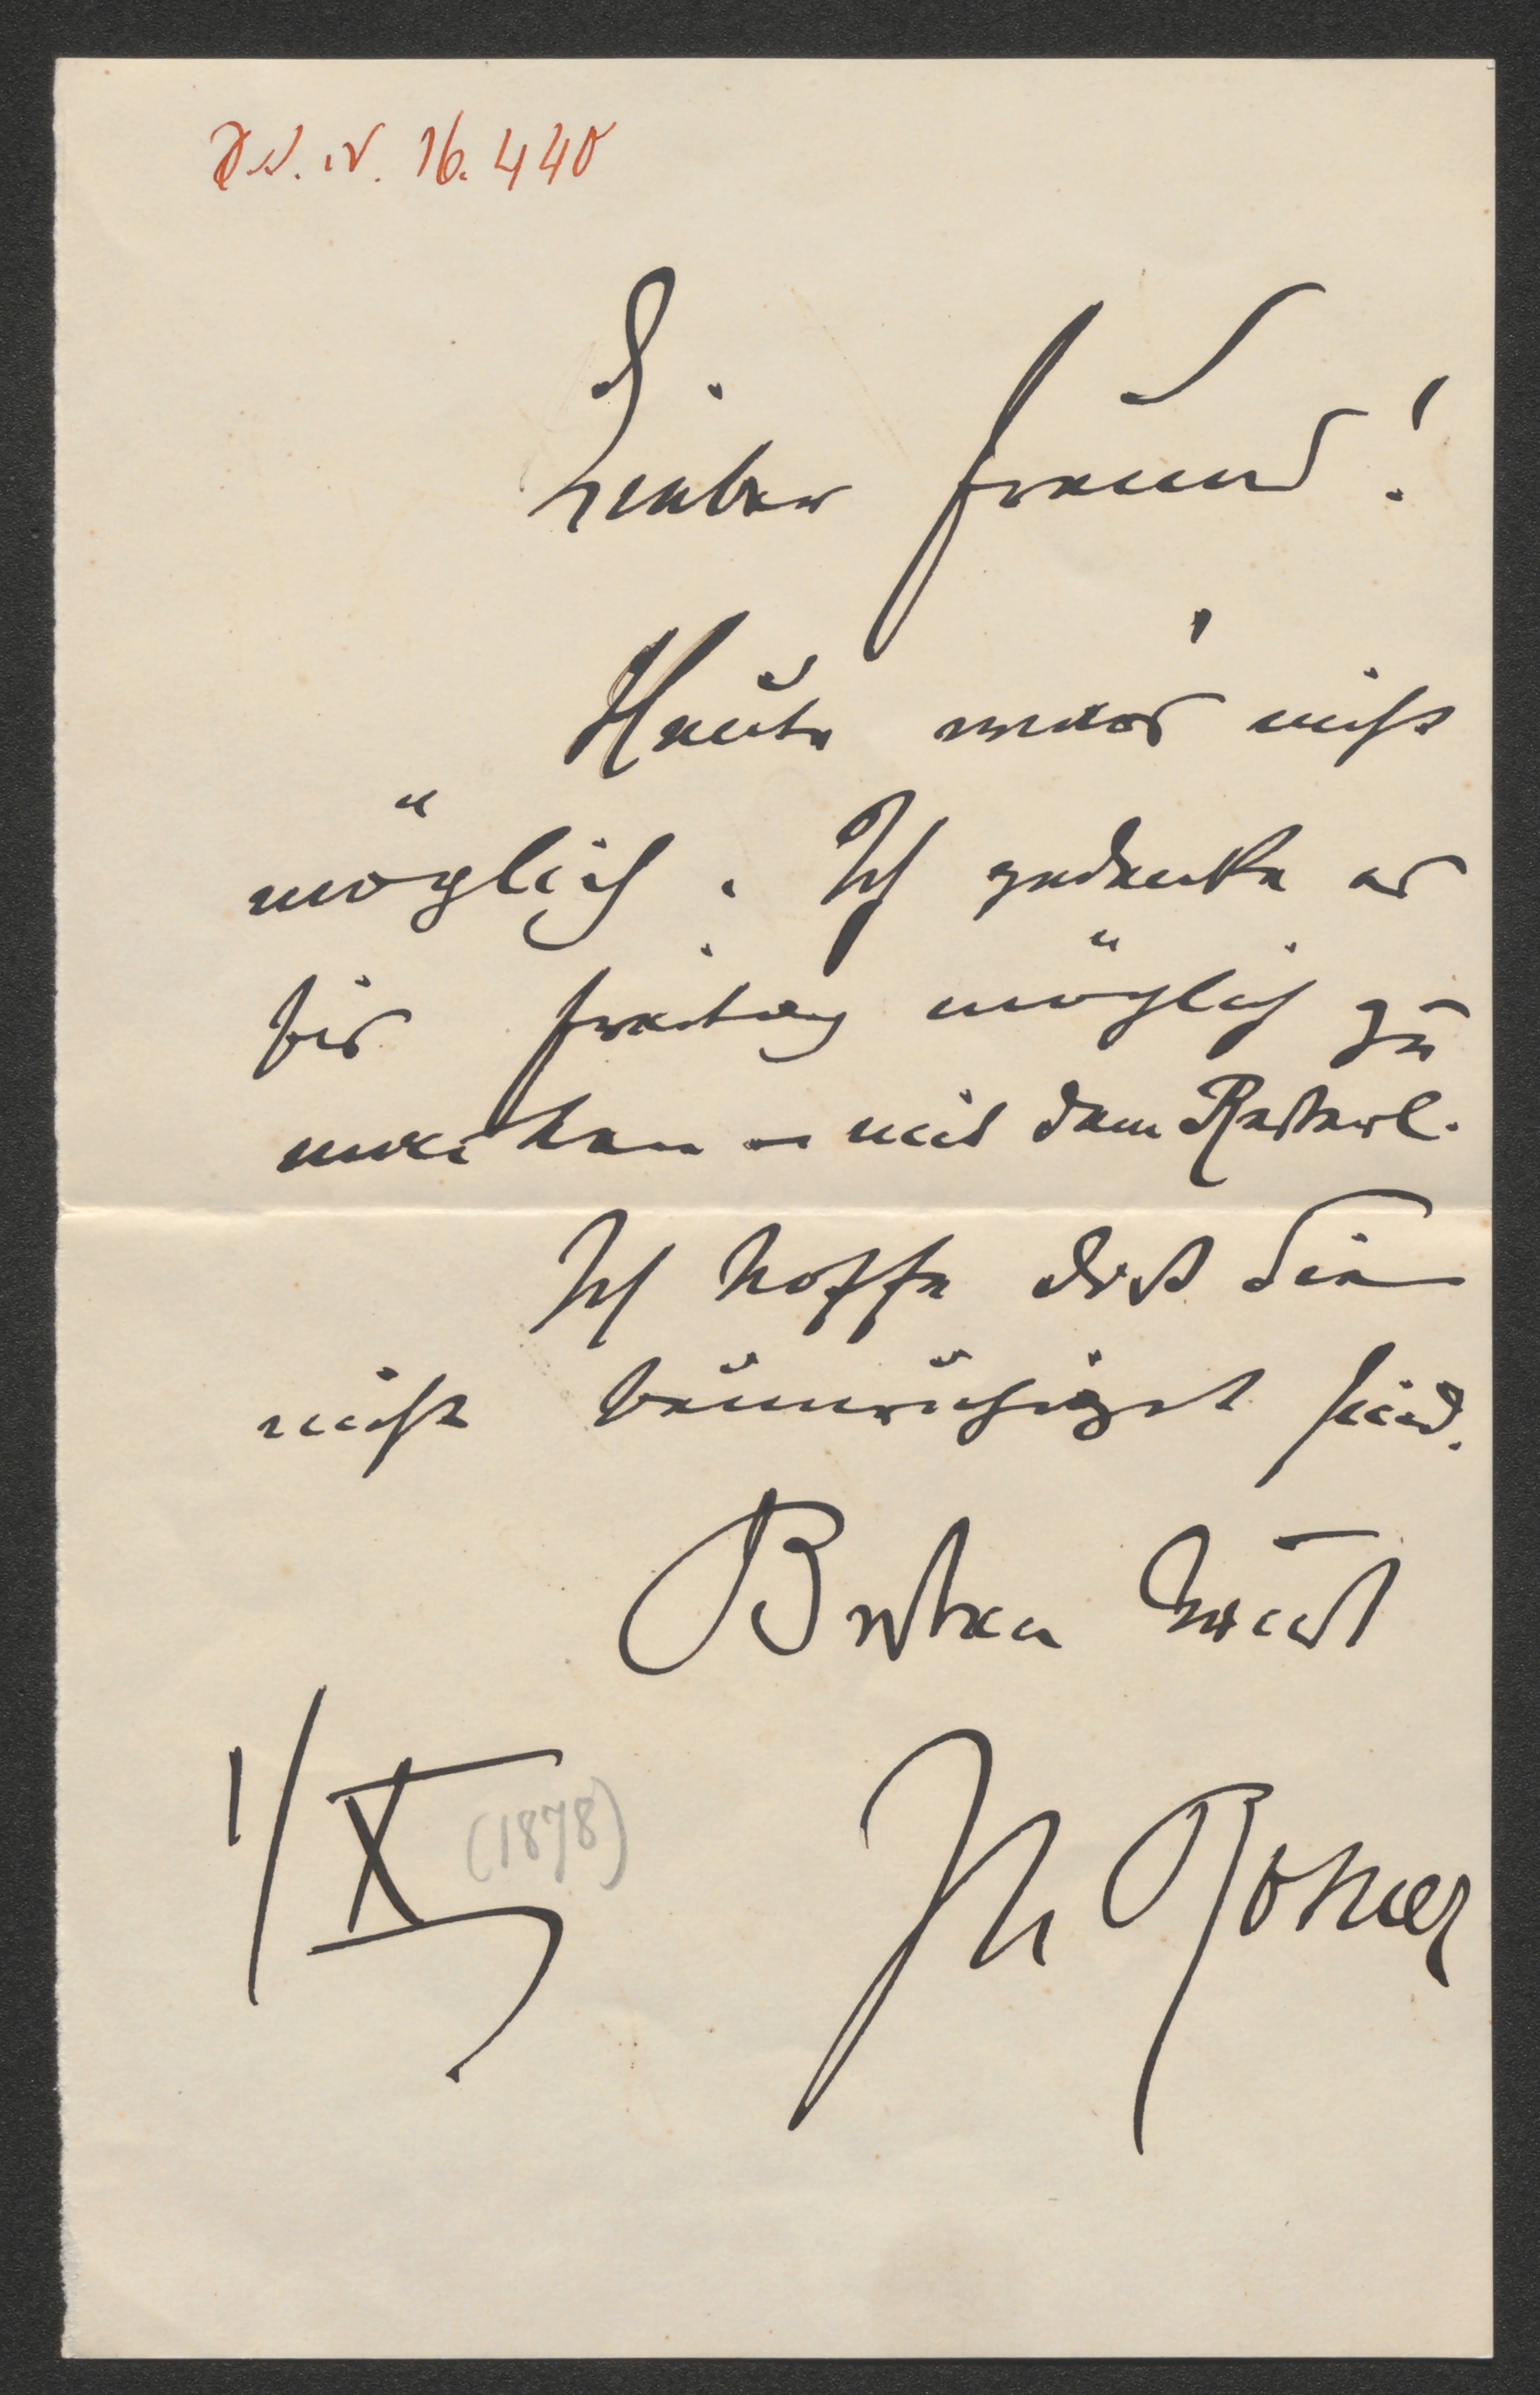 J. N. 16.440
Lieber Freund!
Heute war's nicht
möglich. Ich gedenke es
bis Freitag möglich zu
machen – mit dem
Ich hoffe daß Sie
nicht beunruhigt sind.
Besten Gruß
1/X (1878)